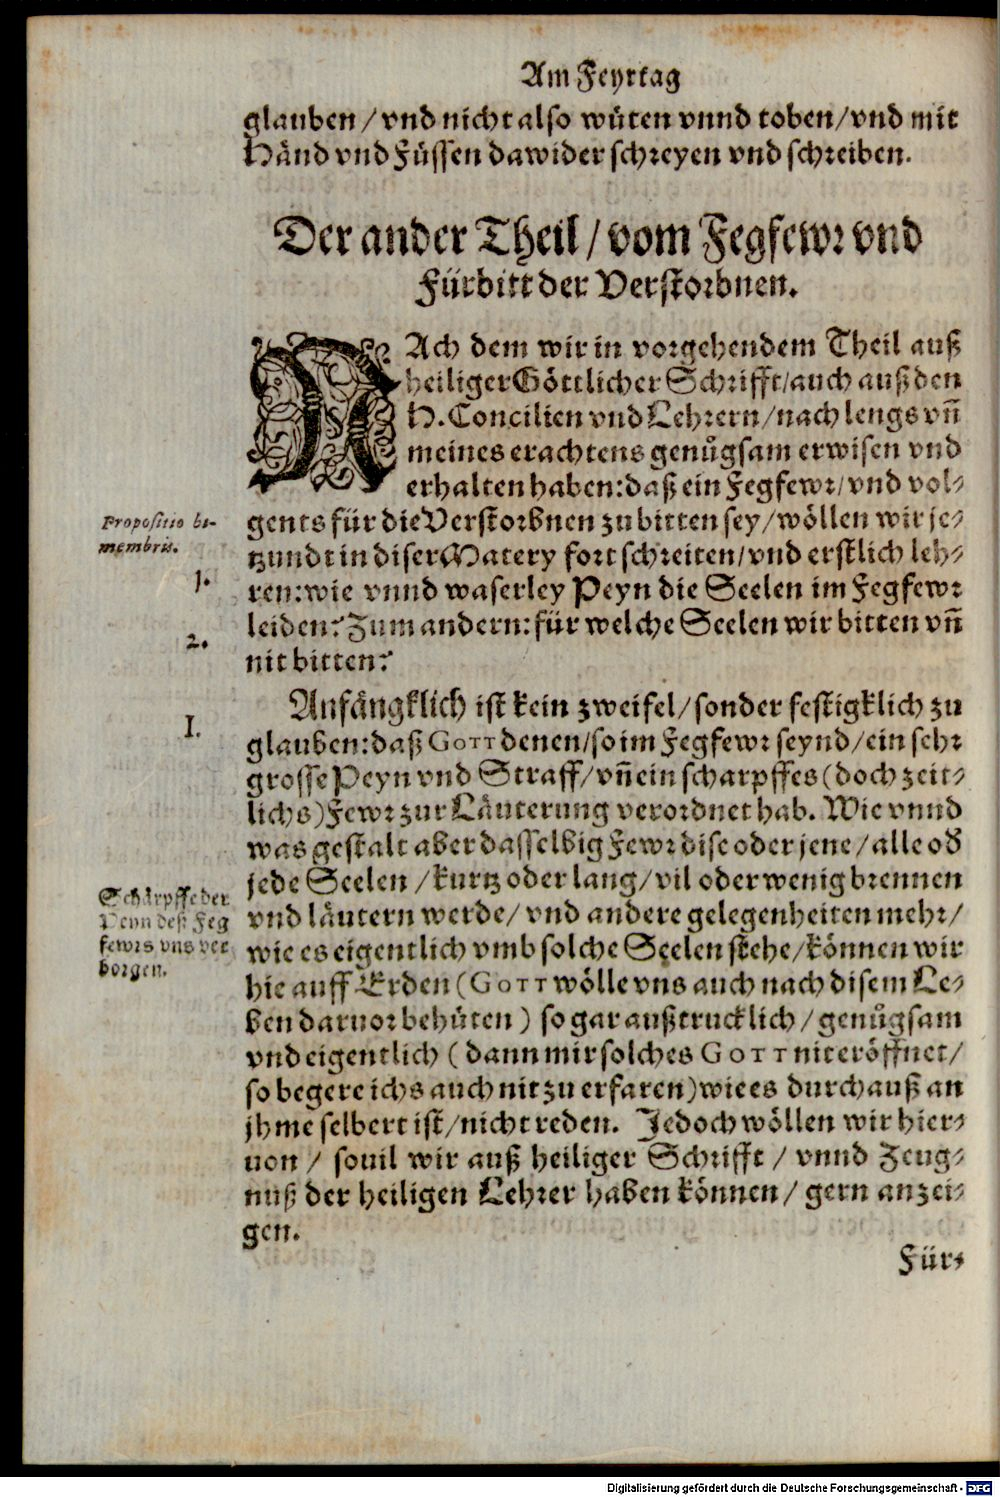 Am Feyrtag
glauben / vnd nicht also wüten vnnd toben / vnd mit
Händ vnd Füssen dawider schreyen vnd schreiben.
Der ander Theil / vom Fegfewr vnd
Fürbitt der Verstorbnen.
NAch dem wir in vorgehendem Theil auß
heiliger Göttlicher Schrifft / auch auß den
H. Concilien vnd Lehrern / nach lengs vñ
meines erachtens genůgsam erwisen vnd
erhalten haben: daß ein Fegfewr / vnd vol-
Propositio bi-
membris.
gents für die Verstorbnen zu bitten sey / wöllen wir je-
tzundt in diser Matery fortschreiten / vnd erstlich leh-
1.
ren: wie vnnd waserley Peyn die Seelen im Fegfewr
leiden? Zum andern: für welche Seelen wir bitten vñ
2.
nit bitten?
I.
Anfängklich ist kein zweifel / sonder festigklich zu
glauben: daß GOTT denen / so im Fegfewr seynd / ein sehr
grosse Peyn vnd Straff / vñ ein scharpffes (doch zeit-
lichs) Fewr zur Läuterung verordnet hab. Wie vnnd
was gestalt aber dasselbig Fewr dise oder jene / alle od
jede Seelen / kurtz oder lang / vil oder wenig brennen
Schärpffe der
Peyn deß Feg
fewrs vns ver
borgen.
vnd läutern werde / vnd andere gelegenheiten mehr /
wie es eigentlich vmb solche Seelen stehe / können wir
hie auff Erden (GOTT wölle vns auch nach disem Le-
ben daruor behüten) so gar außtrucklich / genůgsam
vnd eigentlich (dann mir solches GOTT nit eröffnet /
so begere ichs auch nit zu erfaren) wie es durchauß an
jhme selbert ist / nicht reden. Jedoch wöllen wir hier-
uon / souil wir auß heiliger Schrifft / vnnd Zeug-
nuß der heiligen Lehrer haben können / gern anzei-
gen.
Für-
Digitalisierung gefördert durch die Deutsche Forschungsgemeinschaft - DFG